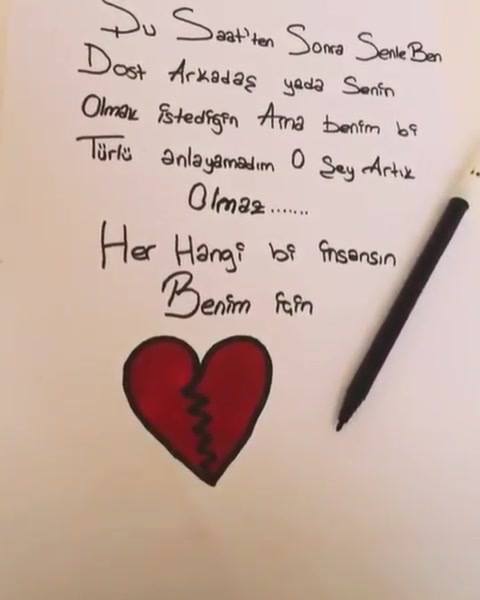 Bu Saat'ten Sonra Senle Ben
Dost Arkadaş yada Senin
Olmak istediğin Ama benim bi
Türlü anlayamadım O Şey Artık
Olmaz.......
Her Hangi bi insansın
Benim için